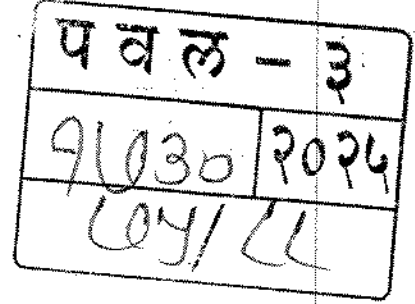 प व ल - ३
१७३० २०२५
७५/८८